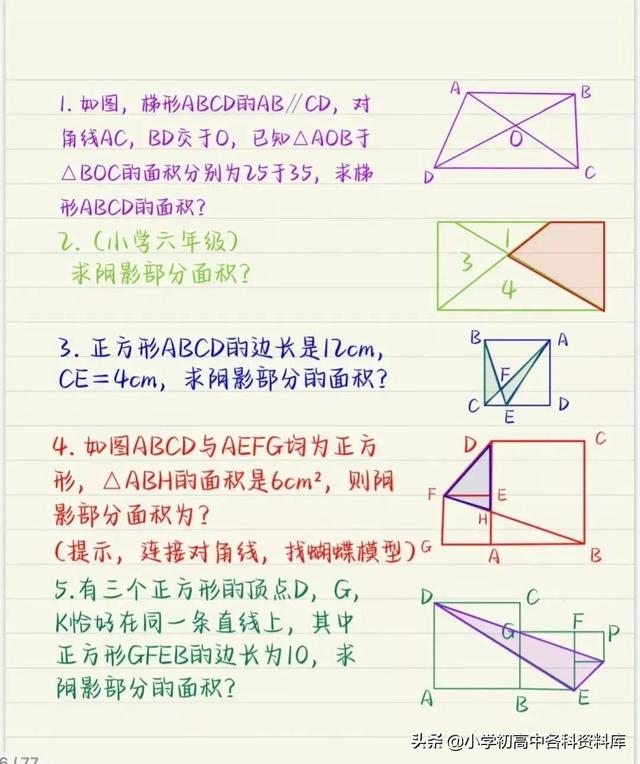 1. 如图，梯形ABCD的AB∥CD，对
角线AC，BD交于O，已知△AOB于
△BOC的面积分别为25于35，求梯
形ABCD的面积？
A
B
O
D
C
2.（小学六年级）
求阴影部分面积？
1
3
4
3. 正方形ABCD的边长是12cm，
CE=4cm，求阴影部分的面积？
B
A
F
C
E
D
4. 如图ABCD与AEFG均为正方
形，△ABH的面积是6cm²，则阴
影部分面积为？
（提示，连接对角线，找蝴蝶模型）
D
C
F
E
H
G
A
B
5. 有三个正方形的顶点D，G，
K恰好在同一条直线上，其中
正方形GFEB的边长为10，求
阴影部分的面积？
D
C
F
G
P
A
B
E
头条 @小学初高中各科资料库
6/77